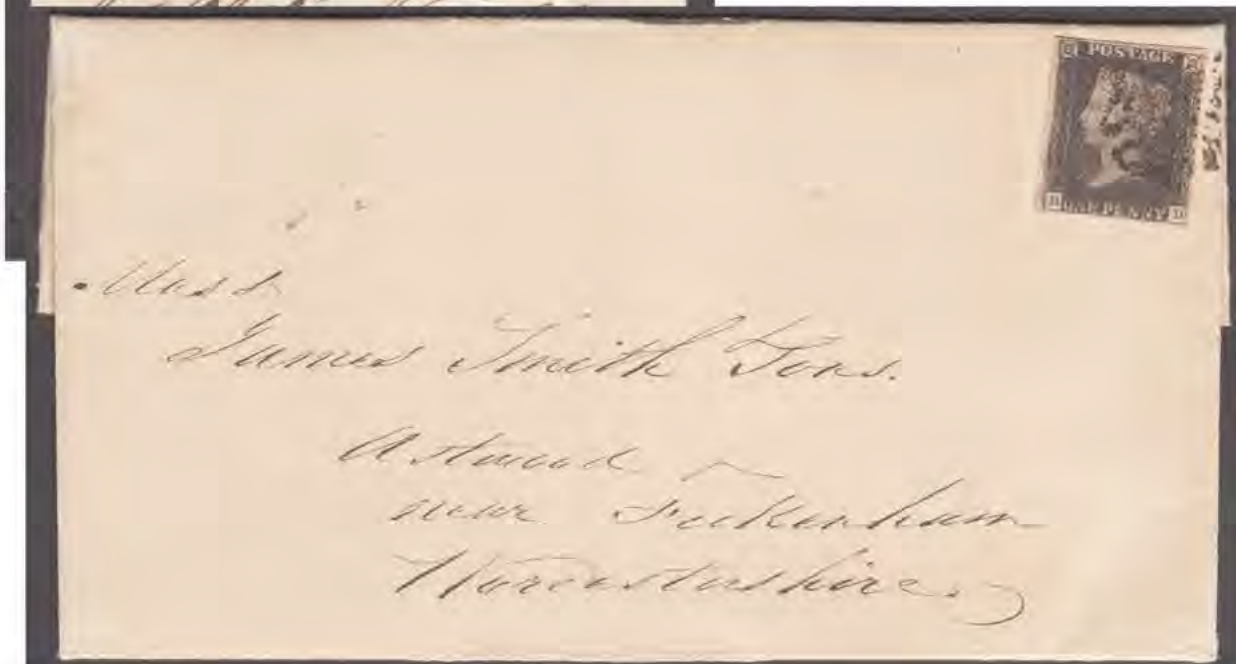 POSTAGE
ONE PENNY
Mess
James Smith Sons.
Astwood
near Feckenham
Worcestershire.